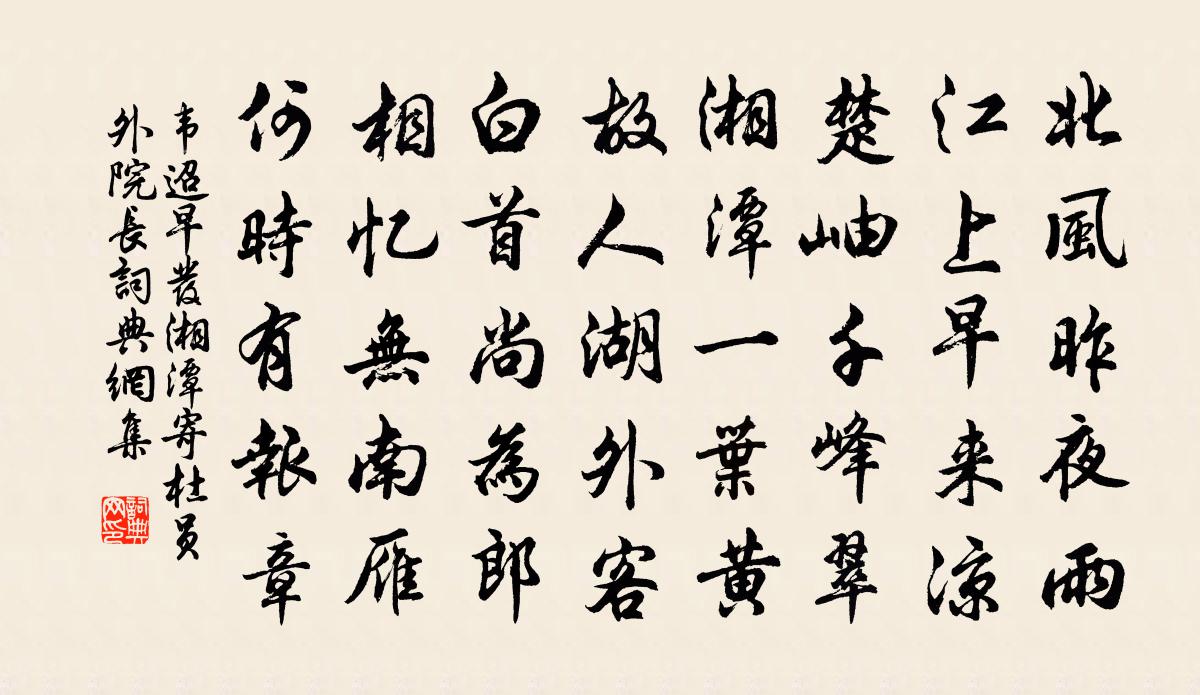 北風昨夜雨
江上早来涼
楚岫千峰翠
湘潭一葉黄
故人湖外客
白首尚為郎
相忆無南雁
何時有報章
韦迢早發湘潭寄杜员
外院長詞典網集
詞典
网印